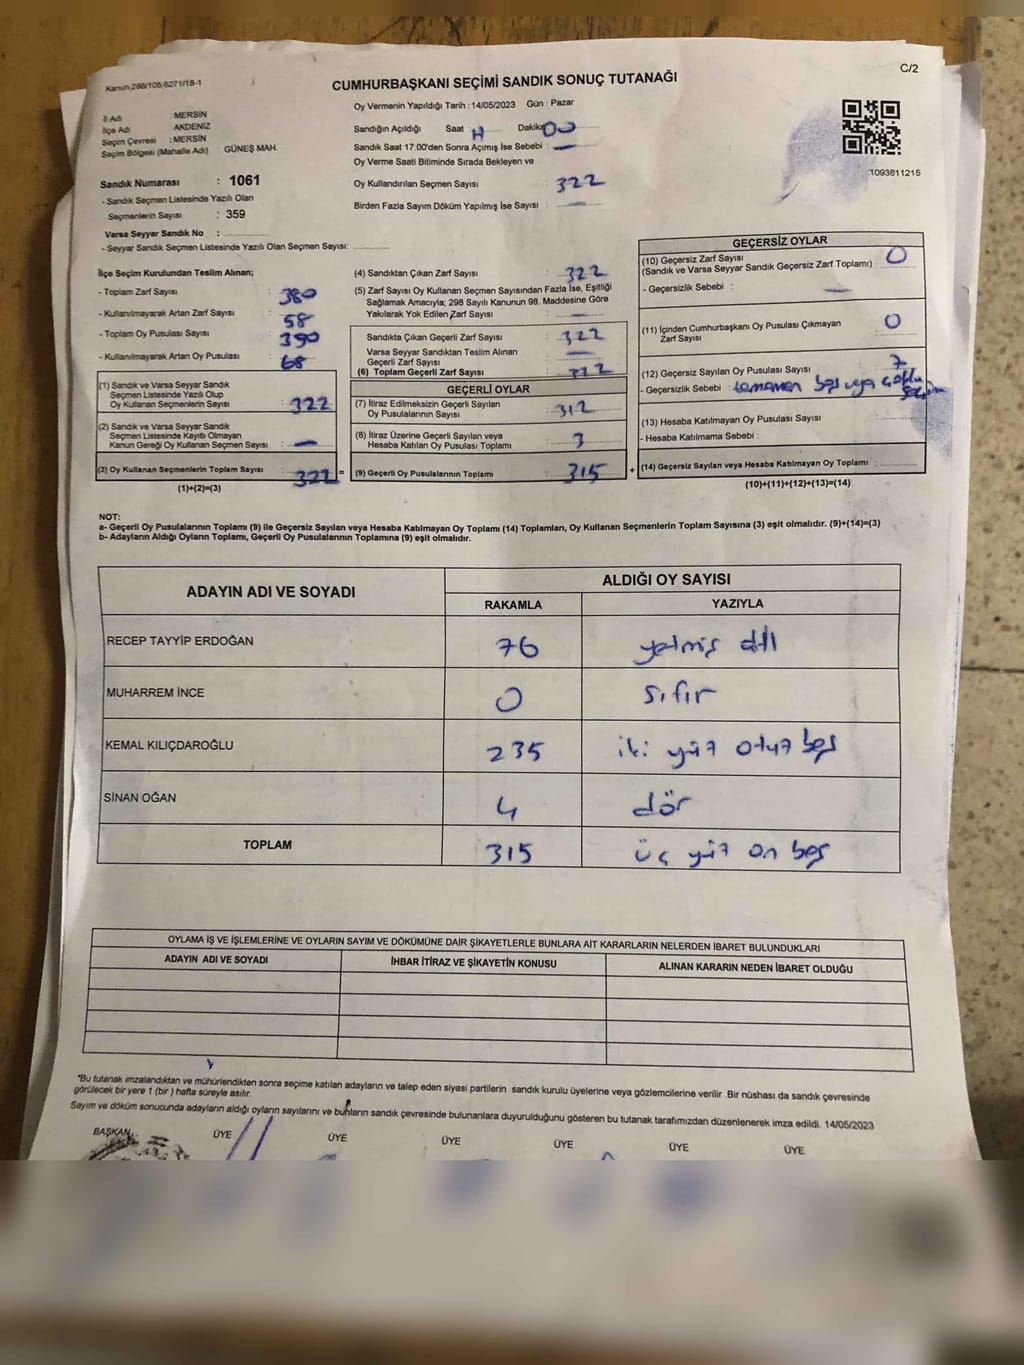 Kanun;298/105,6271/18-1
C/2
CUMHURBAŞKANI SEÇİMİ SANDIK SONUÇ TUTANAĞI
İl Adı MERSİN
İlçe Adı AKDENİZ
Seçim Çevresi : MERSİN
Seçim Bölgesi (Mahalle Adı) GÜNEŞ MAH.
Sandık Numarası : 1061
- Sandık Seçmen Listesinde Yazılı Olan
Seçmenlerin Sayısı : 359
Varsa Seyyar Sandık No :
- Seyyar Sandık Seçmen Listesinde Yazılı Olan Seçmen Sayısı:
Oy Vermenin Yapıldığı Tarih :14/05/2023 Gün : Pazar
Sandığın Açıldığı Saat Dakika 00
Sandık Saat 17:00'den Sonra Açımış İse Sebebi : —
Oy Verme Saati Bitiminde Sırada Bekleyen ve
Oy Kullandırılan Seçmen Sayısı : 322
Birden Fazla Sayım Döküm Yapılmış İse Sayısı : —
1093811215
İlçe Seçim Kurulundan Teslim Alınan;
- Toplam Zarf Sayısı : 380
- Kullanılmayarak Artan Zarf Sayısı : 58
- Toplam Oy Pusulası Sayısı : 390
- Kullanılmayarak Artan Oy Pusulası : 68
(1) Sandık ve Varsa Seyyar Sandık
Seçmen Listesinde Yazılı Olup
Oy Kullanan Seçmenlerin Sayısı : 322
(2) Sandık ve Varsa Seyyar Sandık
Seçmen Listesinde Kayıtlı Olmayan
Kanun Gereği Oy Kullanan Seçmen Sayısı : —
(3) Oy Kullanan Seçmenlerin Toplam Sayısı : 322 =
(1)+(2)=(3)
(4) Sandıktan Çıkan Zarf Sayısı : 322
(5) Zarf Sayısı Oy Kullanan Seçmen Sayısından Fazla İse, Eşitliği
Sağlamak Amacıyla; 298 Sayılı Kanunun 98. Maddesine Göre
Yakılarak Yok Edilen Zarf Sayısı : —
Sandıkta Çıkan Geçerli Zarf Sayısı : 322
Varsa Seyyar Sandıktan Teslim Alınan
Geçerli Zarf Sayısı : —
(6) Toplam Geçerli Zarf Sayısı : 322
GEÇERLİ OYLAR
(7) İtiraz Edilmeksizin Geçerli Sayılan
Oy Pusulalarının Sayısı : 312
(8) İtiraz Üzerine Geçerli Sayılan veya
Hesaba Katılan Oy Pusulaları Toplamı : 3
(9) Geçerli Oy Pusulalarının Toplamı : 315 +
GEÇERSİZ OYLAR
(10) Geçersiz Zarf Sayısı
(Sandık ve Varsa Seyyar Sandık Geçersiz Zarf Toplamı) : 0
- Geçersizlik Sebebi : —
(11) İçinden Cumhurbaşkanı Oy Pusulası Çıkmayan
Zarf Sayısı : 0
(12) Geçersiz Sayılan Oy Pusulası Sayısı : 7
- Geçersizlik Sebebi : tamamen boş veya çoklu seçim
(13) Hesaba Katılmayan Oy Pusulası Sayısı :
- Hesaba Katılmama Sebebi :
(14) Geçersiz Sayılan veya Hesaba Katılmayan Oy Toplamı :
(10)+(11)+(12)+(13)=(14)
NOT:
a- Geçerli Oy Pusulalarının Toplamı (9) ile Geçersiz Sayılan veya Hesaba Katılmayan Oy Toplamı (14) Toplamları, Oy Kullanan Seçmenlerin Toplam Sayısına (3) eşit olmalıdır. (9)+(14)=(3)
b- Adayların Aldığı Oyların Toplamı, Geçerli Oy Pusulalarının Toplamına (9) eşit olmalıdır.
ADAYIN ADI VE SOYADI ALDIĞI OY SAYISI
RAKAMLA YAZIYLA
RECEP TAYYİP ERDOĞAN 76 yetmiş altı
MUHARREM İNCE 0 sıfır
KEMAL KILIÇDAROĞLU 235 iki yüz otuz beş
SİNAN OĞAN 4 dör
TOPLAM 315 üç yüz on beş
OYLAMA İŞ VE İŞLEMLERİNE VE OYLARIN SAYIM VE DÖKÜMÜNE DAİR ŞİKAYETLERLE BUNLARA AİT KARARLARIN NELERDEN İBARET BULUNDUKLARI
ADAYIN ADI VE SOYADI İHBAR İTİRAZ VE ŞİKAYETİN KONUSU ALINAN KARARIN NEDEN İBARET OLDUĞU
"Bu tutanak imzalandıktan ve mühürlendikten sonra seçime katılan adayların ve talep eden siyasi partilerin sandık kurulu üyelerine veya gözlemcilerine verilir .Bir nüshası da sandık çevresinde
görülecek bir yere 1 (bir ) hafta süreyle asılır.
Sayım ve döküm sonucunda adayların aldığı oyların sayılarını ve bunların sandık çevresinde bulunanlara duyurulduğunu gösteren bu tutanak tarafımızdan düzenlenerek imza edildi. 14/05/2023
BAŞKAN ÜYE ÜYE ÜYE ÜYE ÜYE ÜYE